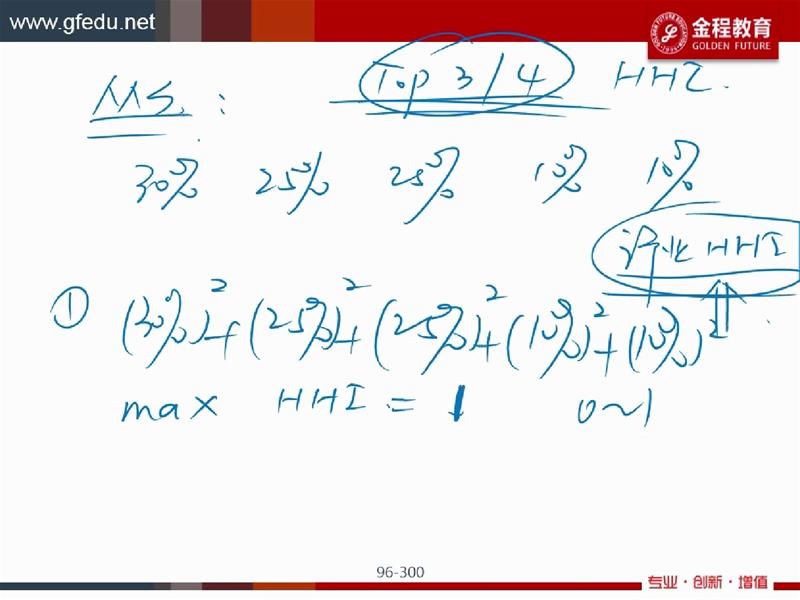 www.gfedu.net
金程教育
GOLDEN FUTURE
Top 3/4 HHI.
30% 25% 25% 10% 10%
HHI
① (30%)²+(25%)²+(25%)²+(10%)²+(10%)²
max HHI = 1 0~1
96-300
专业·创新·增值